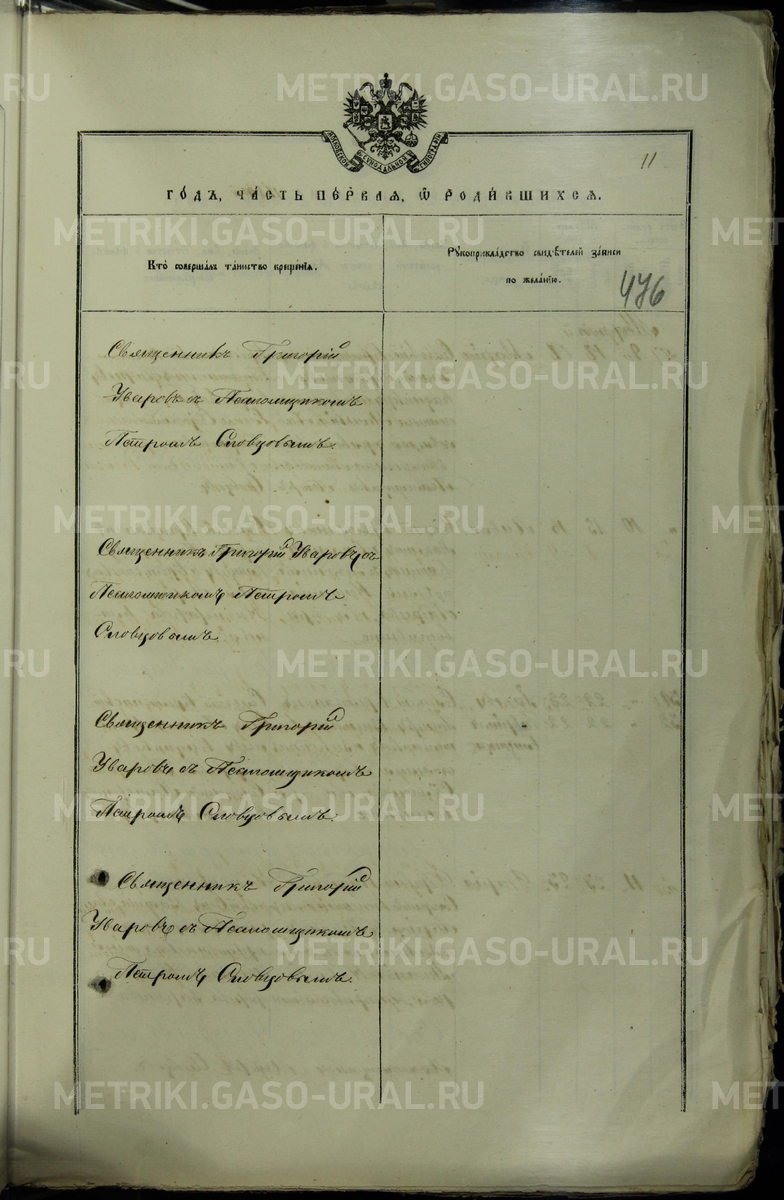 METRIKI.GASO-URAL.RU
11
го́дъ, ча́сть пе́рвая, ѡ҆ роди́вшихсѧ.
Кто̀ соверша́лъ та́инство креще́нїѧ.
Рꙋкоприкла́дство свидѣ́телей за́писи
по жела́нїю.
476
Священникъ Григорій
Уваровъ съ Псаломщикомъ
Петромъ Словцовымъ.
Священникъ Григорій Уваровъ съ
Псаломщикомъ Петромъ
Словцовымъ
Священникъ Григорій
Уваровъ съ Псаломщикомъ
Петромъ Словцовымъ.
Священникъ Григорій
Уваровъ съ Псаломщикомъ
Петромъ Словцовымъ.